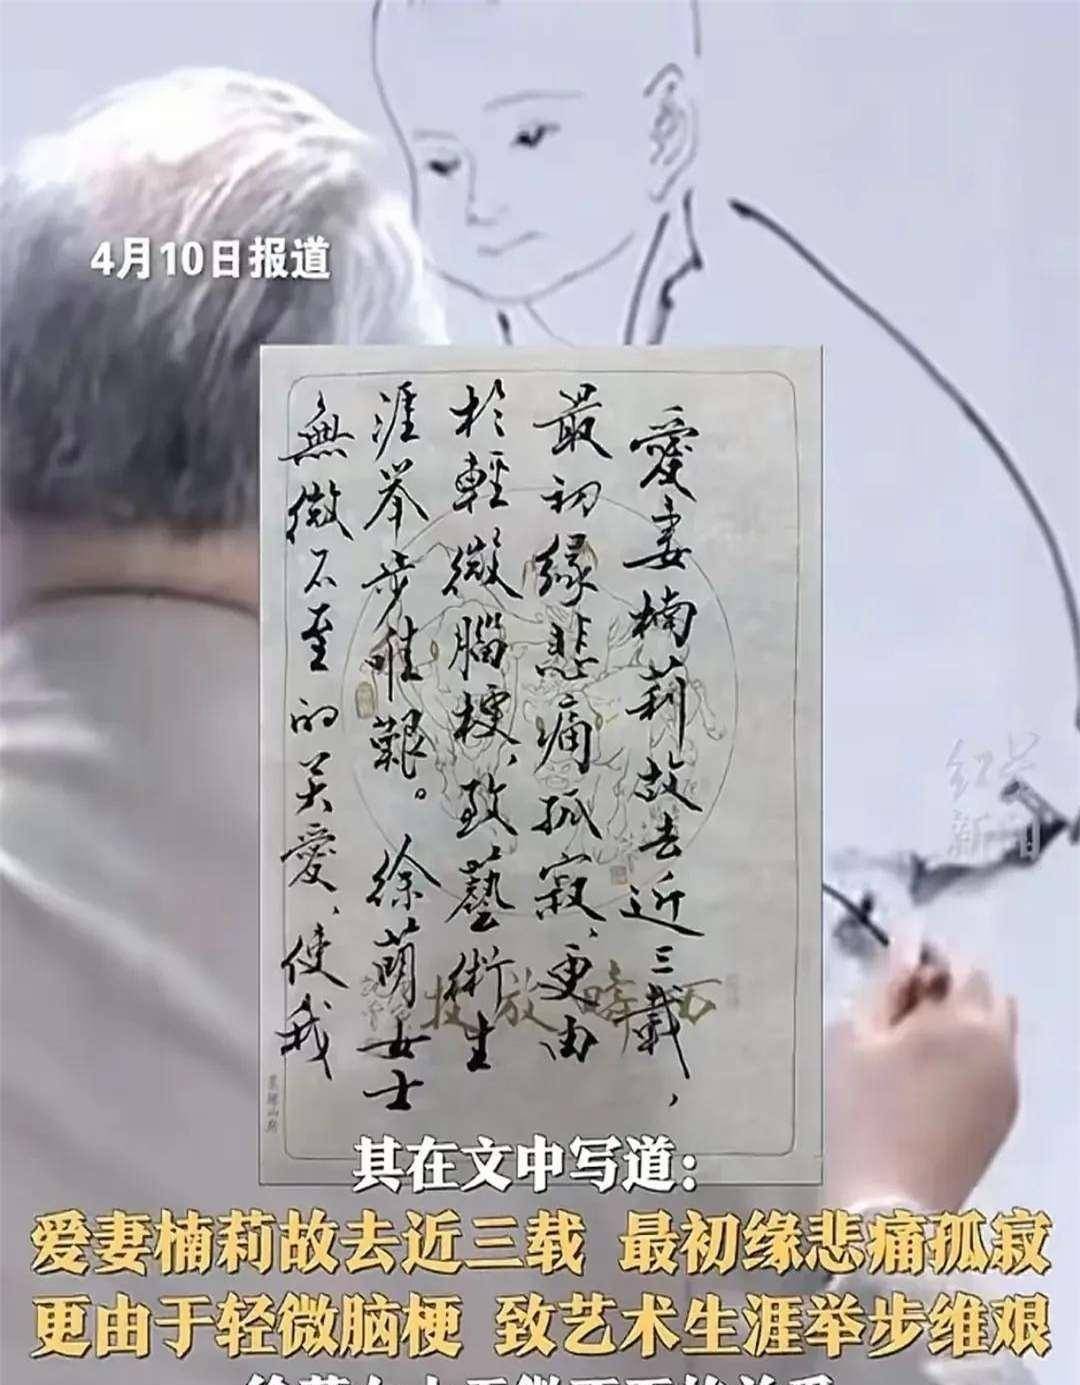 4月10日报道
愛妻楠莉故去近三載，
最初缘悲痛孤寂、更由
於輕微腦梗，致藝術生
涯举步唯艱。徐萌女士
無微不至的关愛、使我
红星
新闻
其在文中写道：
爱妻楠莉故去近三载 最初缘悲痛孤寂
更由于轻微脑梗 致艺术生涯举步维艰